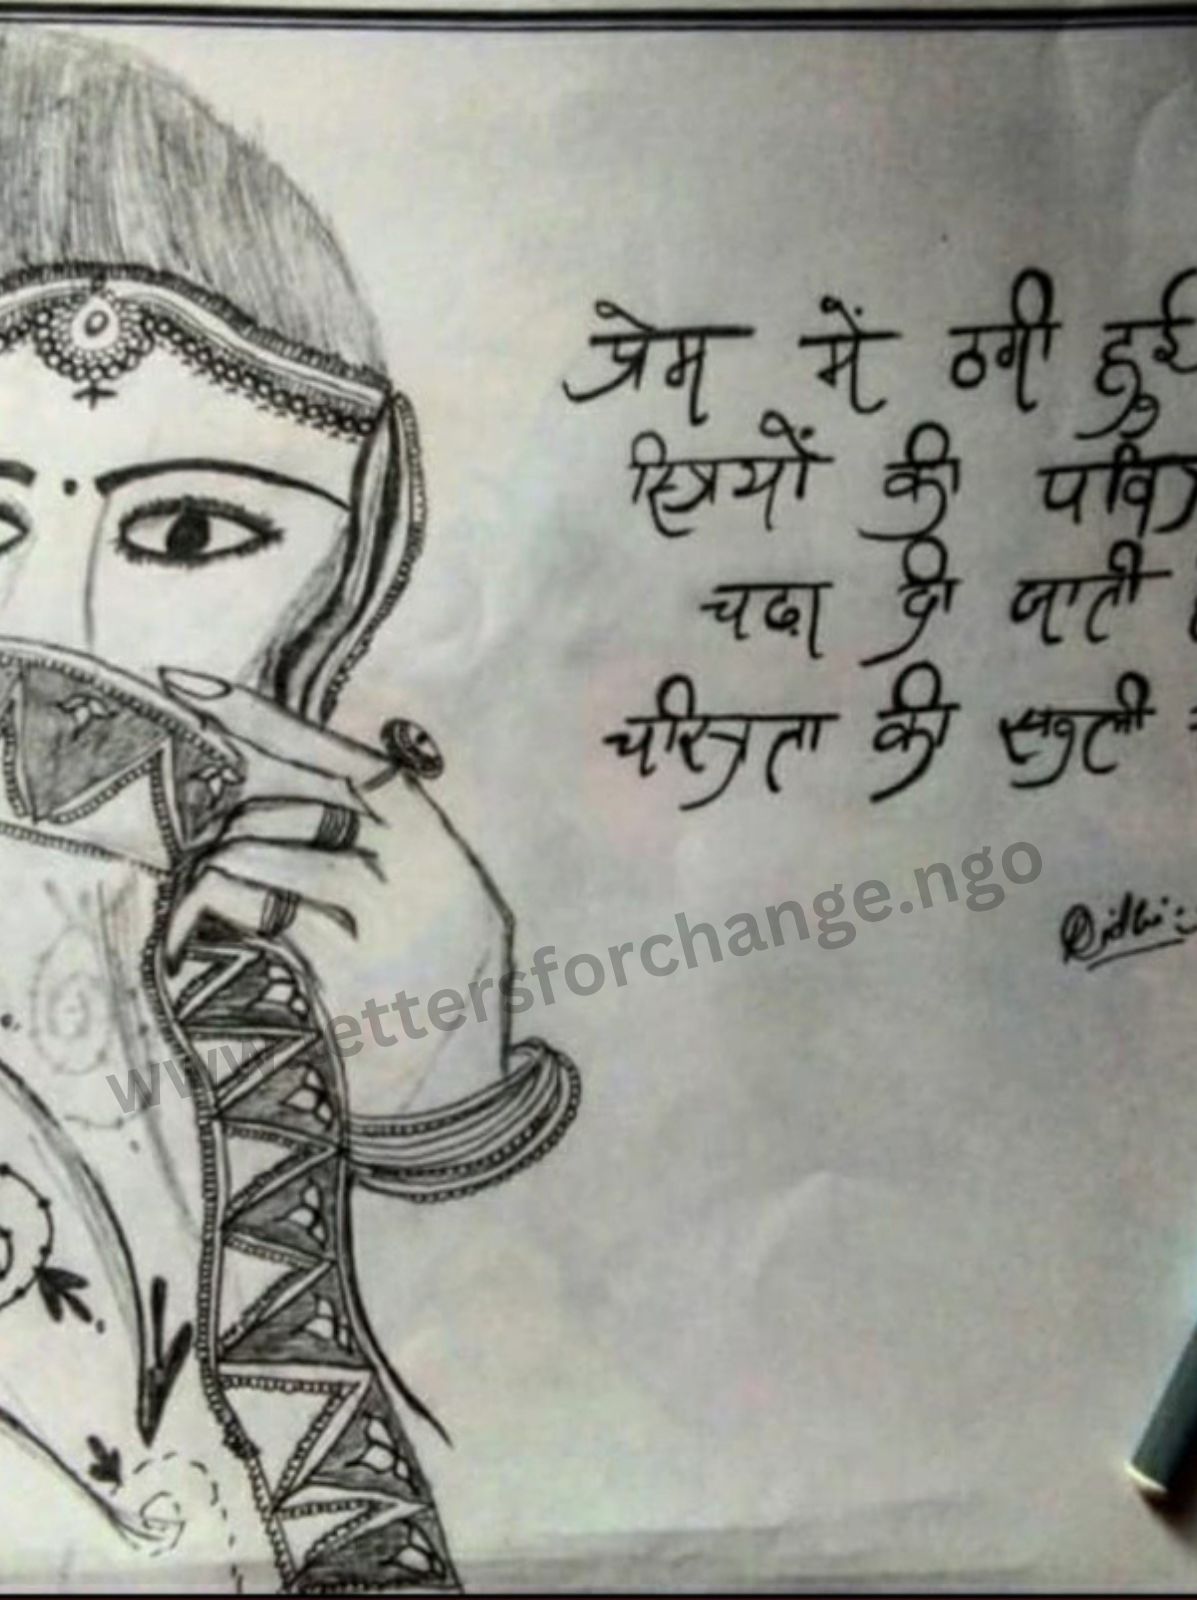 प्रेम में ठगी हुई
स्त्रियों की
चढा दी जाती
चरित्रता की
www.lettersforchange.ngo